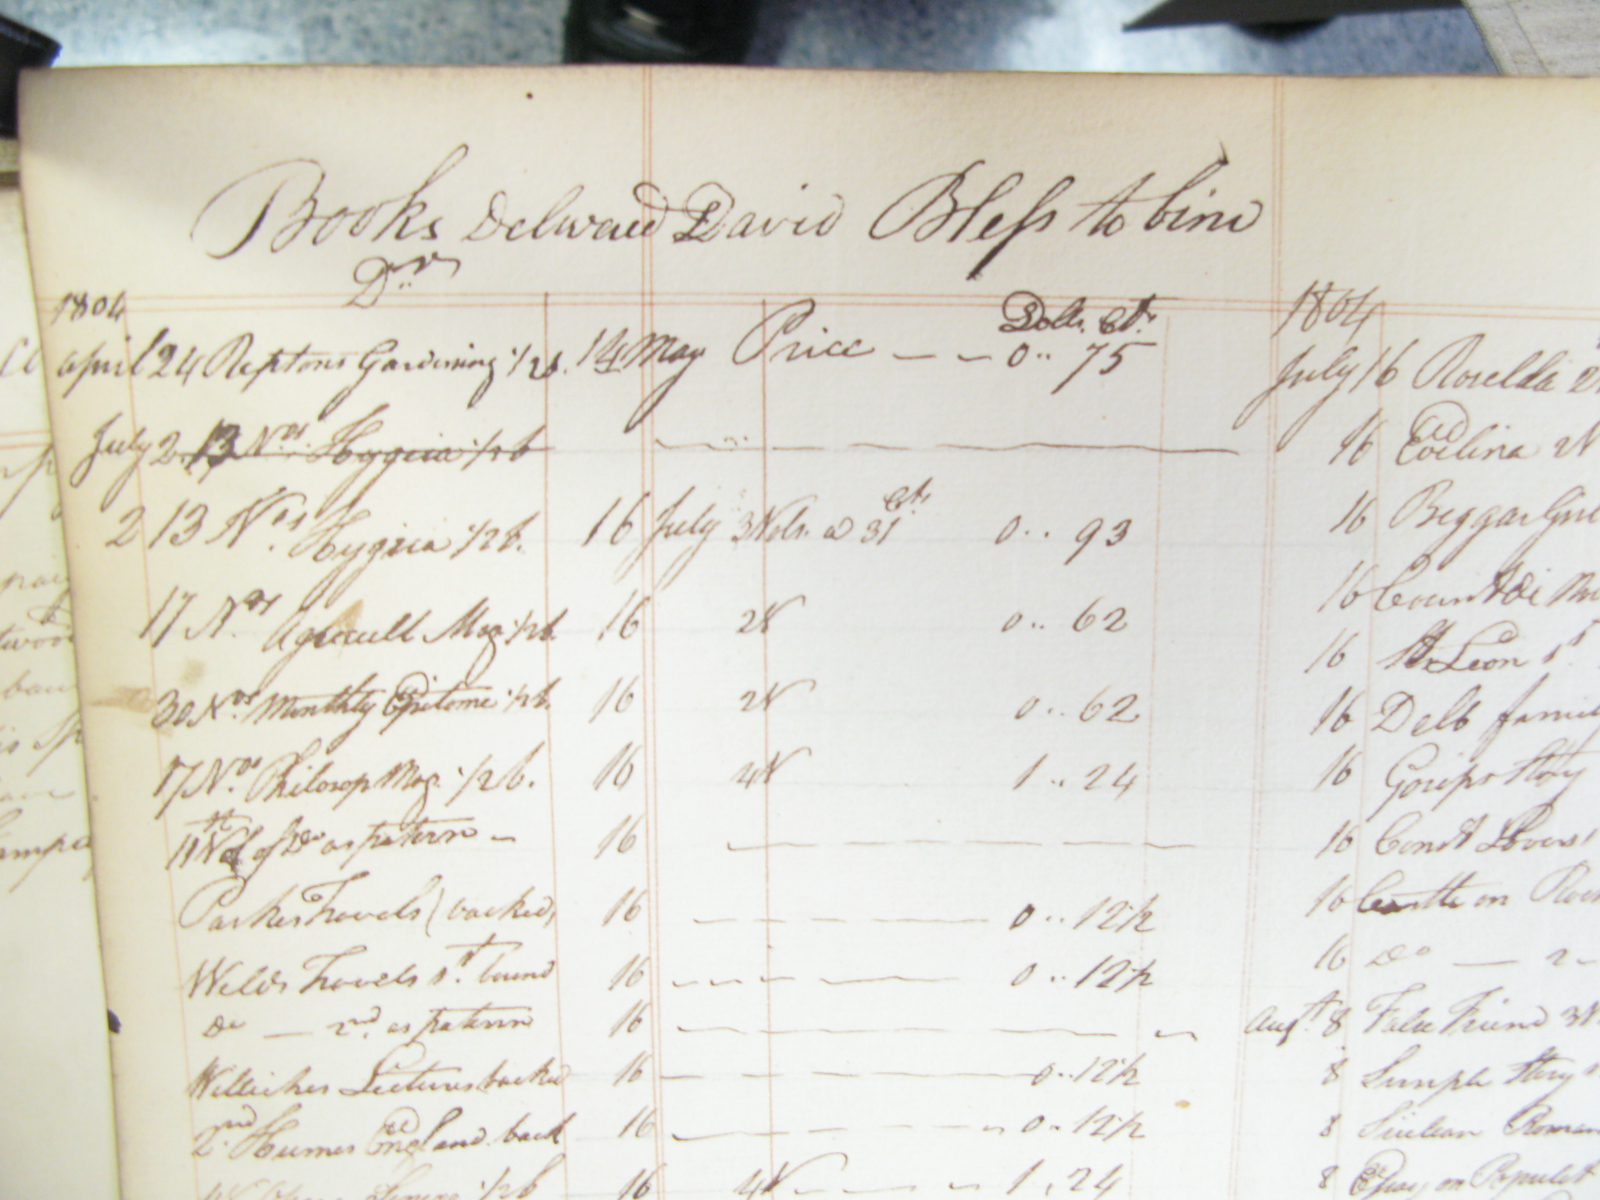 Books Delivered David Bless to bind
Drs
1804
Dolls. Cts.
april 24 Reptons Gardining 1/2 b. 14 May Price — — 0.. 75
July 2. 13 Nos. Hygeia 1/2 b
2 13 Nos. Hygeia 1/2 b. 16 July 3 Vols. a 31 cts 0.. 93
17 Nos. Agricult Mag. 1/2 b. 16 2V 0.. 62
30 Nos. Monthly Epitome 1/2 b. 16 2V 0.. 62
17 Nos. Philosop Mag. 1/2 b. 16 4V 1.. 24
of Do as pattern — 16
Parkes Travels (backed) 16 0.. 12 1/2
Welds Travels 1st. bound 16 0.. 12 1/2
Do — 2nd. as pattern 16
Willichs Lectures backed 16 0.. 12 1/2
2nd. Humes England back 16 0.. 12 1/2
1/2 b 16 4V 1. 24
1804
July 16 Rosella 2
16 Evelina 2V
16 Beggar Girl
16 Count di
16 St. Leon 1st
16 Delb famil
16 Gosips Story
16 Const Lovers
16 Castle on Rock
16 Do — 2
Augt. 8 False Friend 3V
8 Simple Story
8 Sicilian Roman
8 Essay on Populat